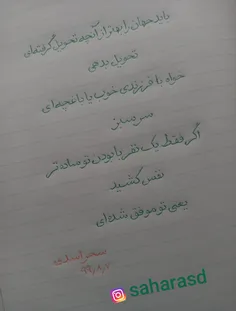 باید جهان را بهتر از آنچه تحویل گرفته‌ای
تحویل بدهی
خواه با فرزندی خوب یا باغچه‌ای
سرسبز
اگر فقط یک نفر با بودن تو ساده‌تر
نفس کشید
یعنی تو موفق شده‌ای
saharasd